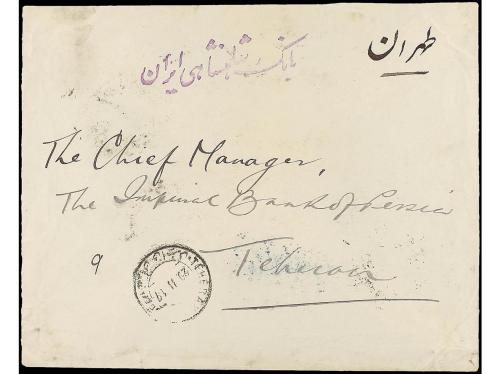 طهران
بانک شاهنشاهی ایران
The Chief Manager,
The Imperial Bank of Persia
Teheran
9